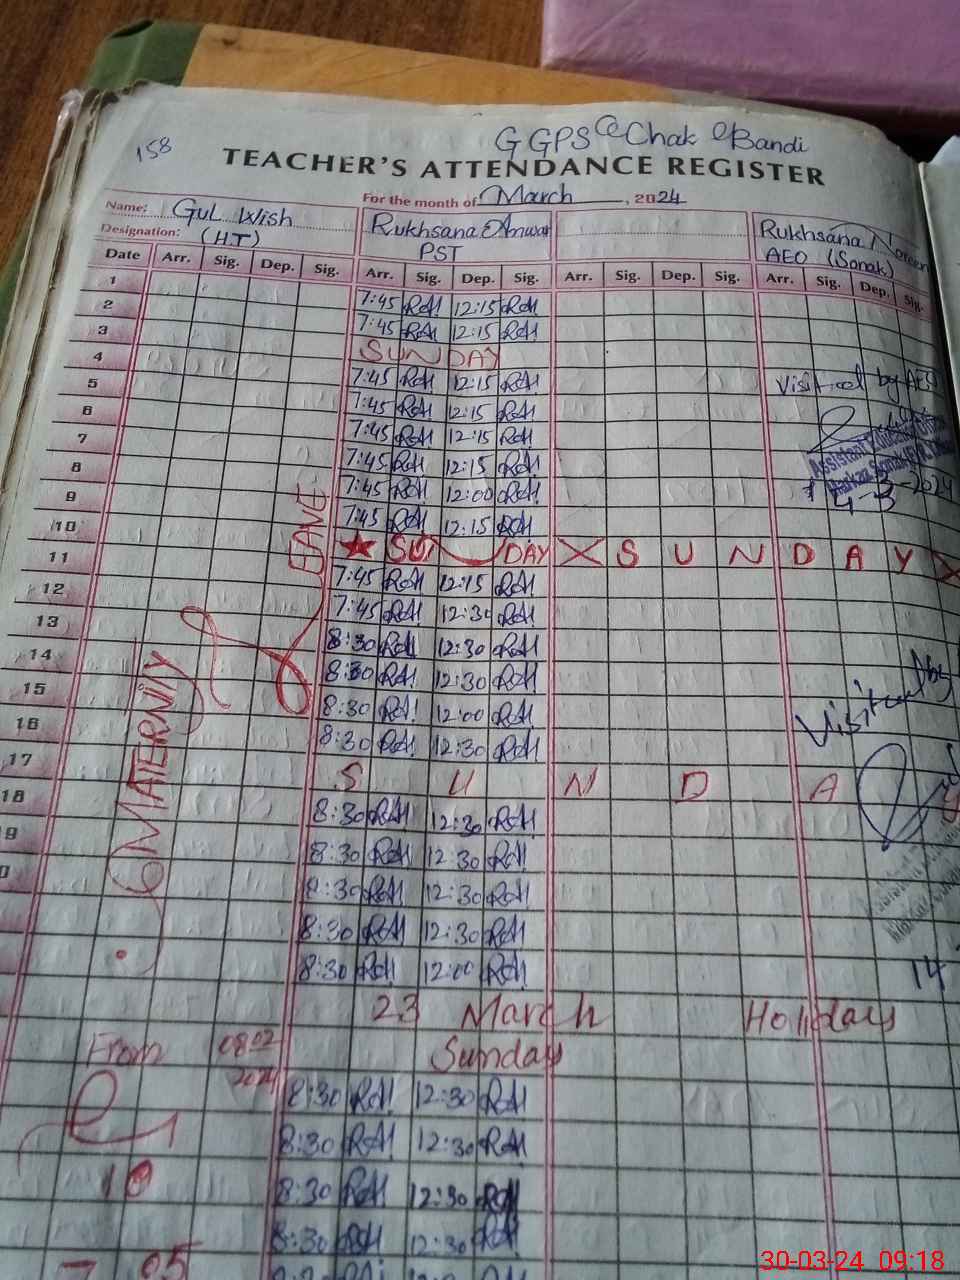 158
GGPS Chak Bandi
TEACHER'S ATTENDANCE REGISTER
For the month of March, 2024
Name: Gul Wish Rukhsana Anwar Rukhsana
Designation: (H.T) PST AEO (Sonak)
Date Arr. Sig. Dep. Sig. Arr. Sig. Dep. Sig. Arr. Sig. Dep. Sig. Arr. Sig. Dep. Sig.
1 7:45 RA 12:15 RA
2 7:45 RA 12:15 RA
3 SUNDAY
4 7:45 RA 12:15 RA
5 7:45 RA 12:15 RA Visited by AEO
6 7:45 RA 12:15 RA
7 7:45 RA 12:15 RA
8 7:45 RA 12:00 RA
9 7:45 RA 12:15 RA 4-3-2024
10 SUNDAY X SUNDAY X
11 7:45 RA 12:15 RA
12 7:45 RA 12:30 RA
13 8:30 RA 12:30 RA
14 8:30 RA 12:30 RA
15 8:30 RA 12:00 RA Visited by
16 8:30 RA 12:30 RA
17 S U N D A Y
18 8:30 RA 12:30 RA
9 8:30 RA 12:30 RA
0 8:30 RA 12:30 RA
8:30 RA 12:30 RA
8:30 RA 12:00 RA 14
23 March Holidays
Sunday
8:30 RA 12:30 RA
8:30 RA 12:30 RA
8:30 RA 12:30 RA
8:30 RA 12:30 RA
MATERNITY LEAVE
From 08 02 2024
10
05
30-03-24 09:18